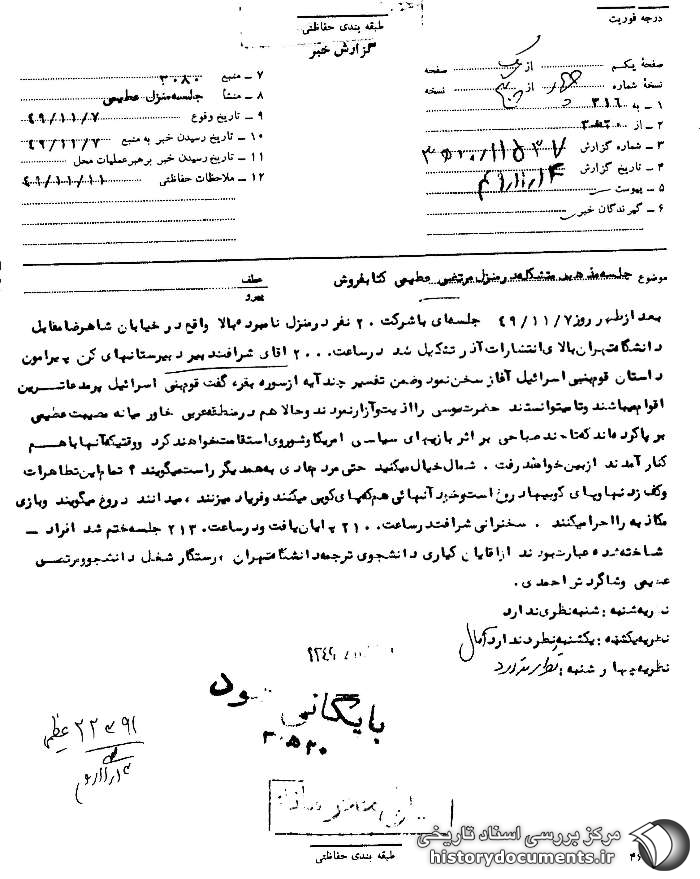 درجه فوریت
طبقه بندی حفاظتی
گزارش خبر
صفحه یکم از صفحه
نسخه شماره از نسخه
۱ ـ به ۳۱۶
۲ ـ از
۳ ـ شماره گزارش
۴ ـ تاریخ گزارش
۵ ـ پیوست
۶ ـ گیرندگان خبر
۷ ـ منبع ۳۰۸۰
۸ ـ منشأ جلسه منزل عظیمی
۹ ـ تاریخ وقوع ۴۹/۱۱/۷
۱۰ ـ تاریخ رسیدن خبر به منبع ۴۹/۱۱/۷
۱۱ ـ تاریخ رسیدن خبر برهبر عملیات محل
۱۲ ـ ملاحظات حفاظتی ۴۹/۱۱/۱۱
موضوع جلسه مذهبی متشکله در منزل مرتضی عظیمی کتابفروش
عطف
پیرو
بعد از ظهر روز ۴۹/۱۱/۷ جلسه‌ای با شرکت ۲۰ نفر در منزل نامبرده بالا واقع در خیابان شاهرضا مقابل
دانشگاه تهران بالای انتشارات آذر تشکیل شد در ساعت ۲۰۰۰ آقای شرافتد بیر دبیرستانهای کن پیرامون
داستان قوم بنی اسرائیل آغاز سخن نمود و ضمن تفسیر چند آیه از سوره بقره گفت قوم بنی اسرائیل پر مدعاترین
اقوام میباشند و تا میتوانستند حضرت موسی را اذیت و آزار نمودند و حالا هم در منطقه عربی خاور میانه مصیبت عظیمی
بر پا کرده‌اند که تا چند صباحی بر اثر بازیهای سیاسی امریکا و شوروی استقامت خواهند کرد و وقتیکه آنها با هم
کنار آمدند از بین خواهند رفت . شما خیال میکنید حتی مردم عادی به همدیگر راست میگویند ؟ تمام این تظاهرات
و کف زدنها و پای کوبیها دروغ است و خود آنهائی هم که پای کوبی میکنند و فریاد میزنند ، میدانند دروغ میگویند و بازی
مکاذبه را اجرا میکنند . سخنرانی شرافتد در ساعت ۲۱۰۰ پایان یافت و در ساعت ۲۱۳۰ جلسه ختم شد افراد ـ
شناخته شده عبارت بودند از آقایان کیاری دانشجوی ترجمه دانشگاه تهران ، رستگار شغل دانشجو و مرتضی
عظیمی و شاگردش احمدی .
نظریه شنبه : شنبه نظری ندارد
نظریه یکشنبه : یکشنبه نظر ندارد
نظریه چهارشنبه :
بایگانی شود
طبقه بندی حفاظتی
مرکز بررسی اسناد تاریخی
historydocuments.ir